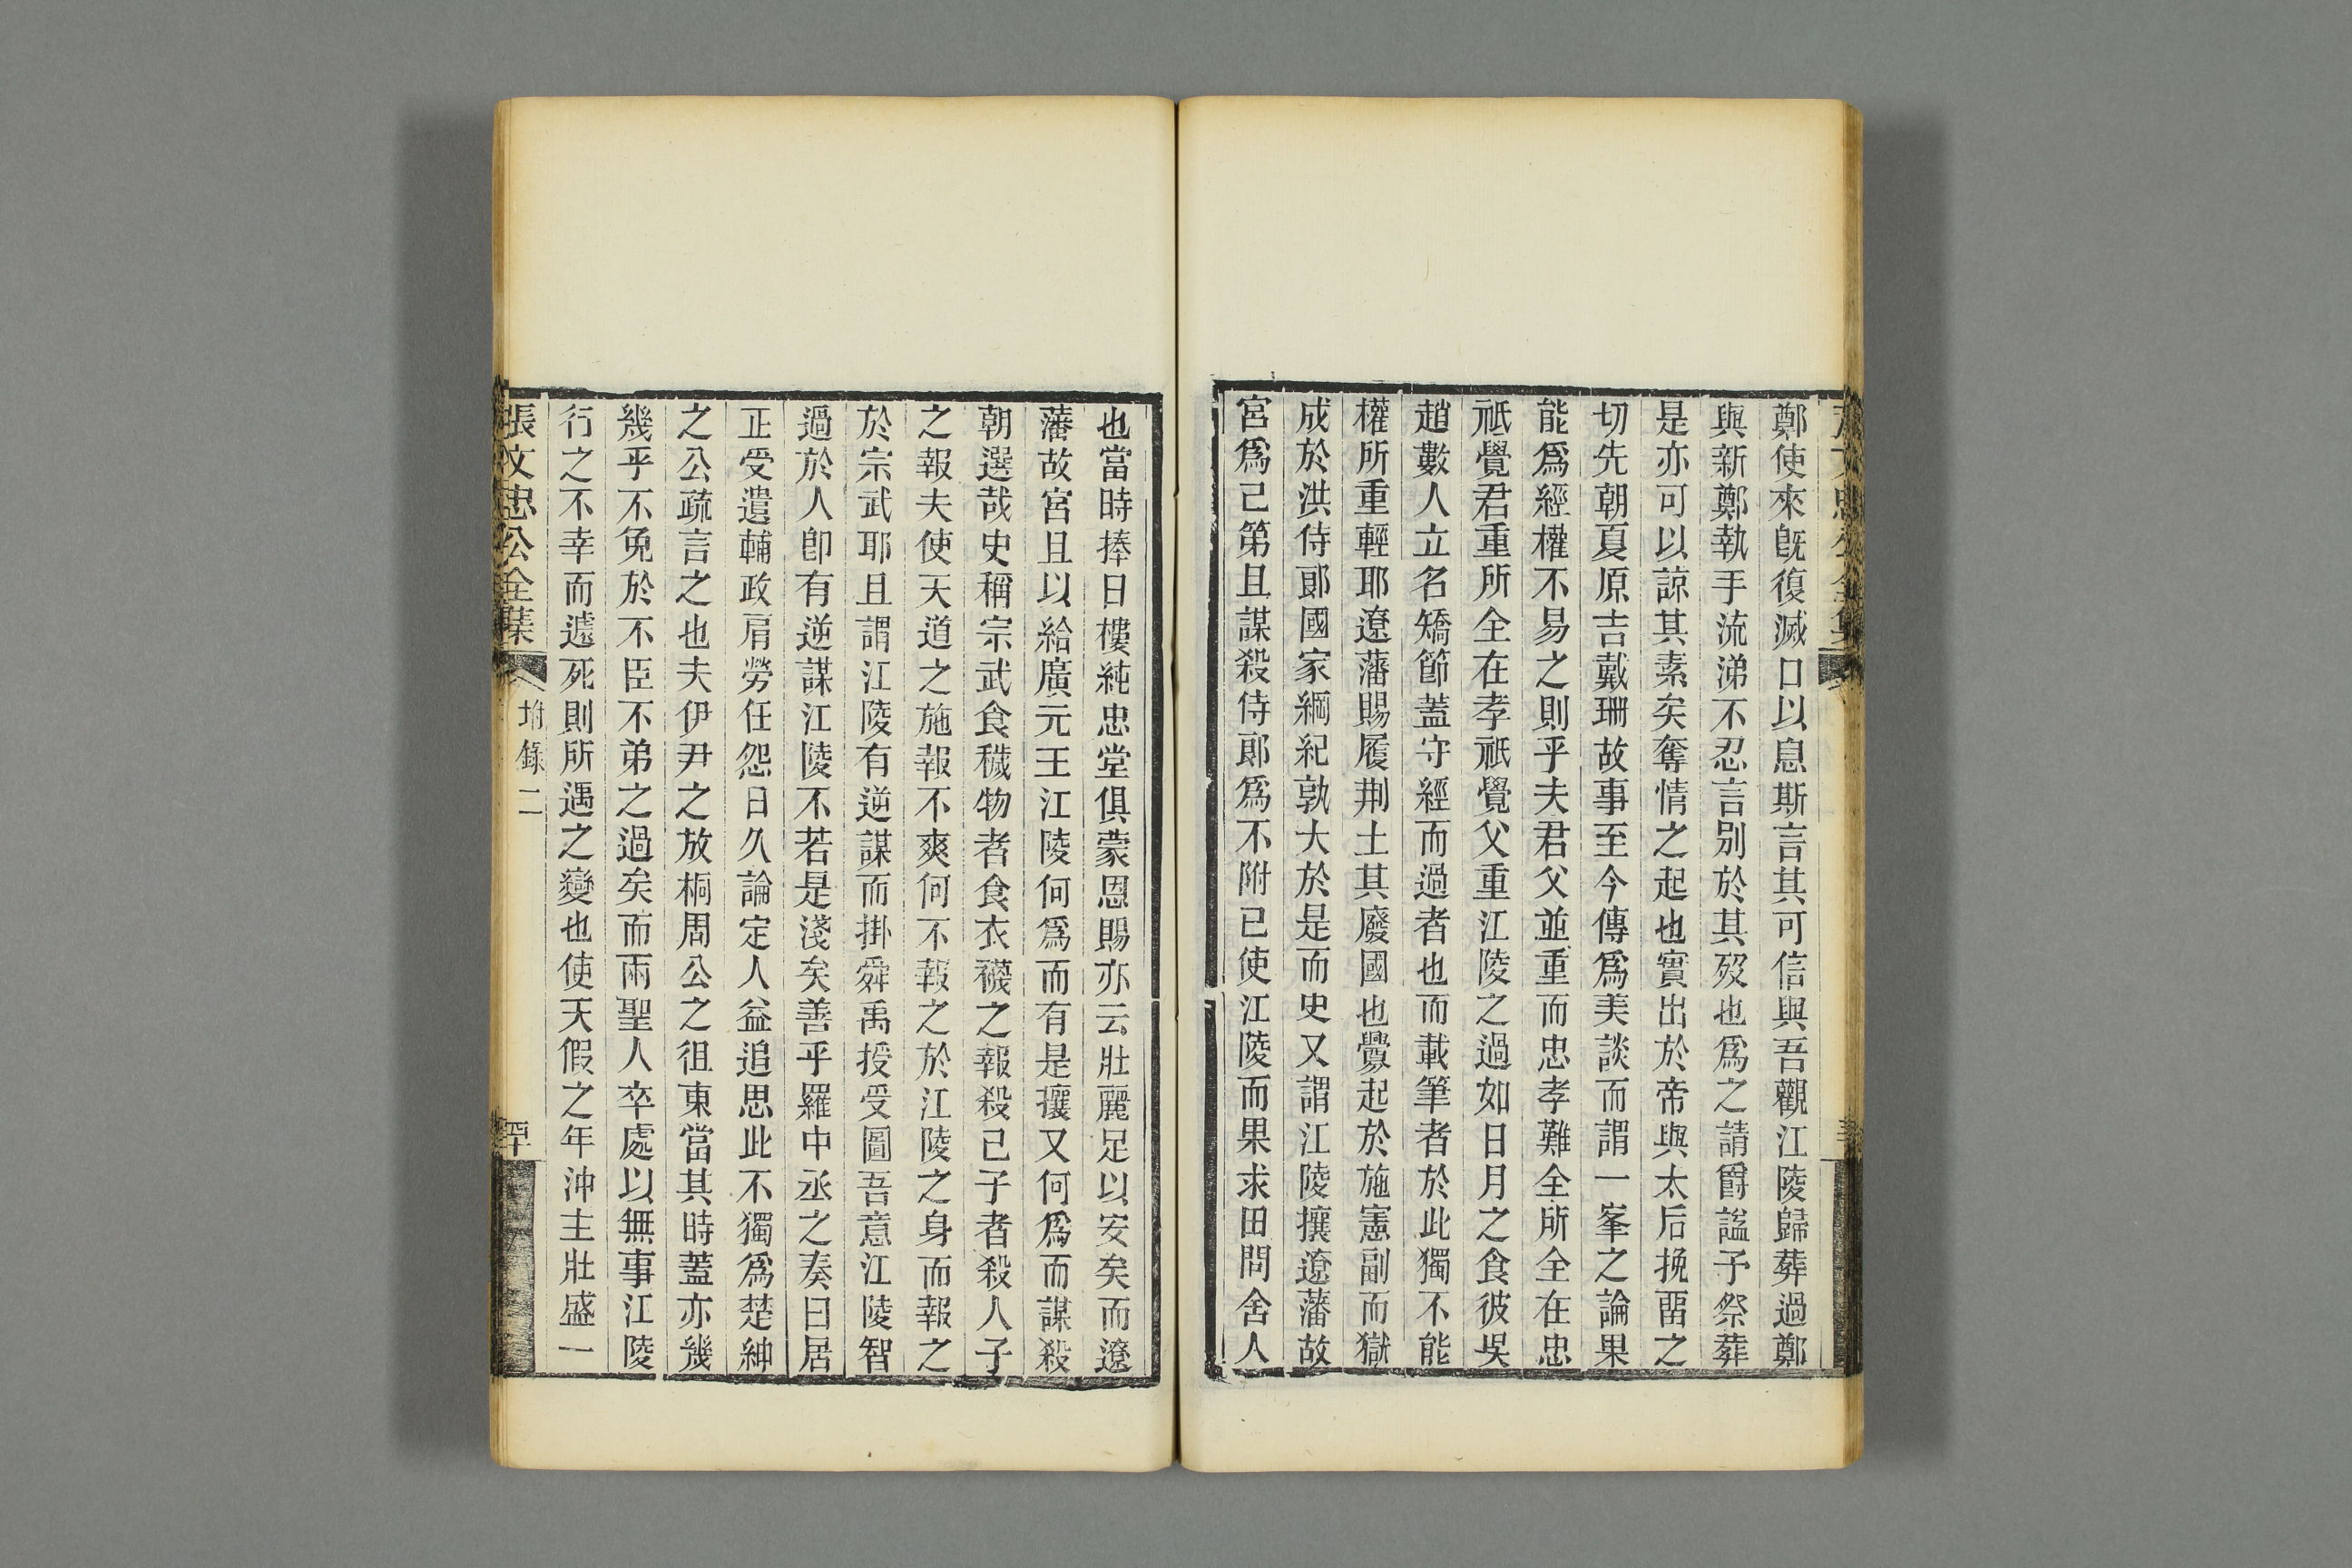 鄭使來旣復滅口以息斯言其可信與吾觀江陵歸葬過鄭
與新鄭執手流涕不忍言别於其歿也爲之請爵謚予祭葬
是亦可以諒其素矣奪情之起也實出於帝與太后挽畱之
切先朝夏原吉戴珊故事至今傳爲美談而謂一峯之論果
能爲經權不易之則乎夫君父並重而忠孝難全所全在忠
祇覺君重所全在孝祇覺父重江陵之過如日月之食彼吳
趙數人立名矯節蓋守經而過者也而載筆者於此獨不能
權所重輕耶遼藩賜履荆土其廢國也釁起於施憲副而獄
成於洪侍郎國家綱紀孰大於是而史又謂江陵攘遼藩故
宮爲己第且謀殺侍郎爲不附已使江陵而果求田問舍人
也當時捧日樓純忠堂俱蒙恩賜亦云壯麗足以安矣而遼
藩故宮且以給廣元王江陵何爲而有是攘又何爲而謀殺
朝選哉史稱宗武食穢物者食衣襪之報殺己子者殺人子
之報夫使天道之施報不爽何不報之於江陵之身而報之
於宗武耶且謂江陵有逆謀而掛舜禹授受圖吾意江陵智
過於人卽有逆謀江陵不若是淺矣善乎羅中丞之奏曰居
正受遺輔政肩勞任怨日久論定人益追思此不獨爲楚紳
之公疏言之也夫伊尹之放桐周公之徂東當其時蓋亦幾
幾乎不免於不臣不弟之過矣而兩聖人卒處以無事江陵
行之不幸而遽死則所遇之變也使天假之年沖主壯盛一
張文忠公全集 坿錄二